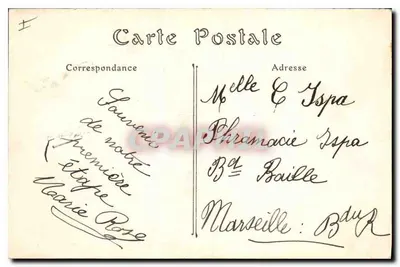 I
Carte Postale
Correspondance
Adresse
Souvenir
de notre
première
étape
Marie Rose
Melle C Ispa
Phramacie Ispa
Bd Baille
Marseille : B du R